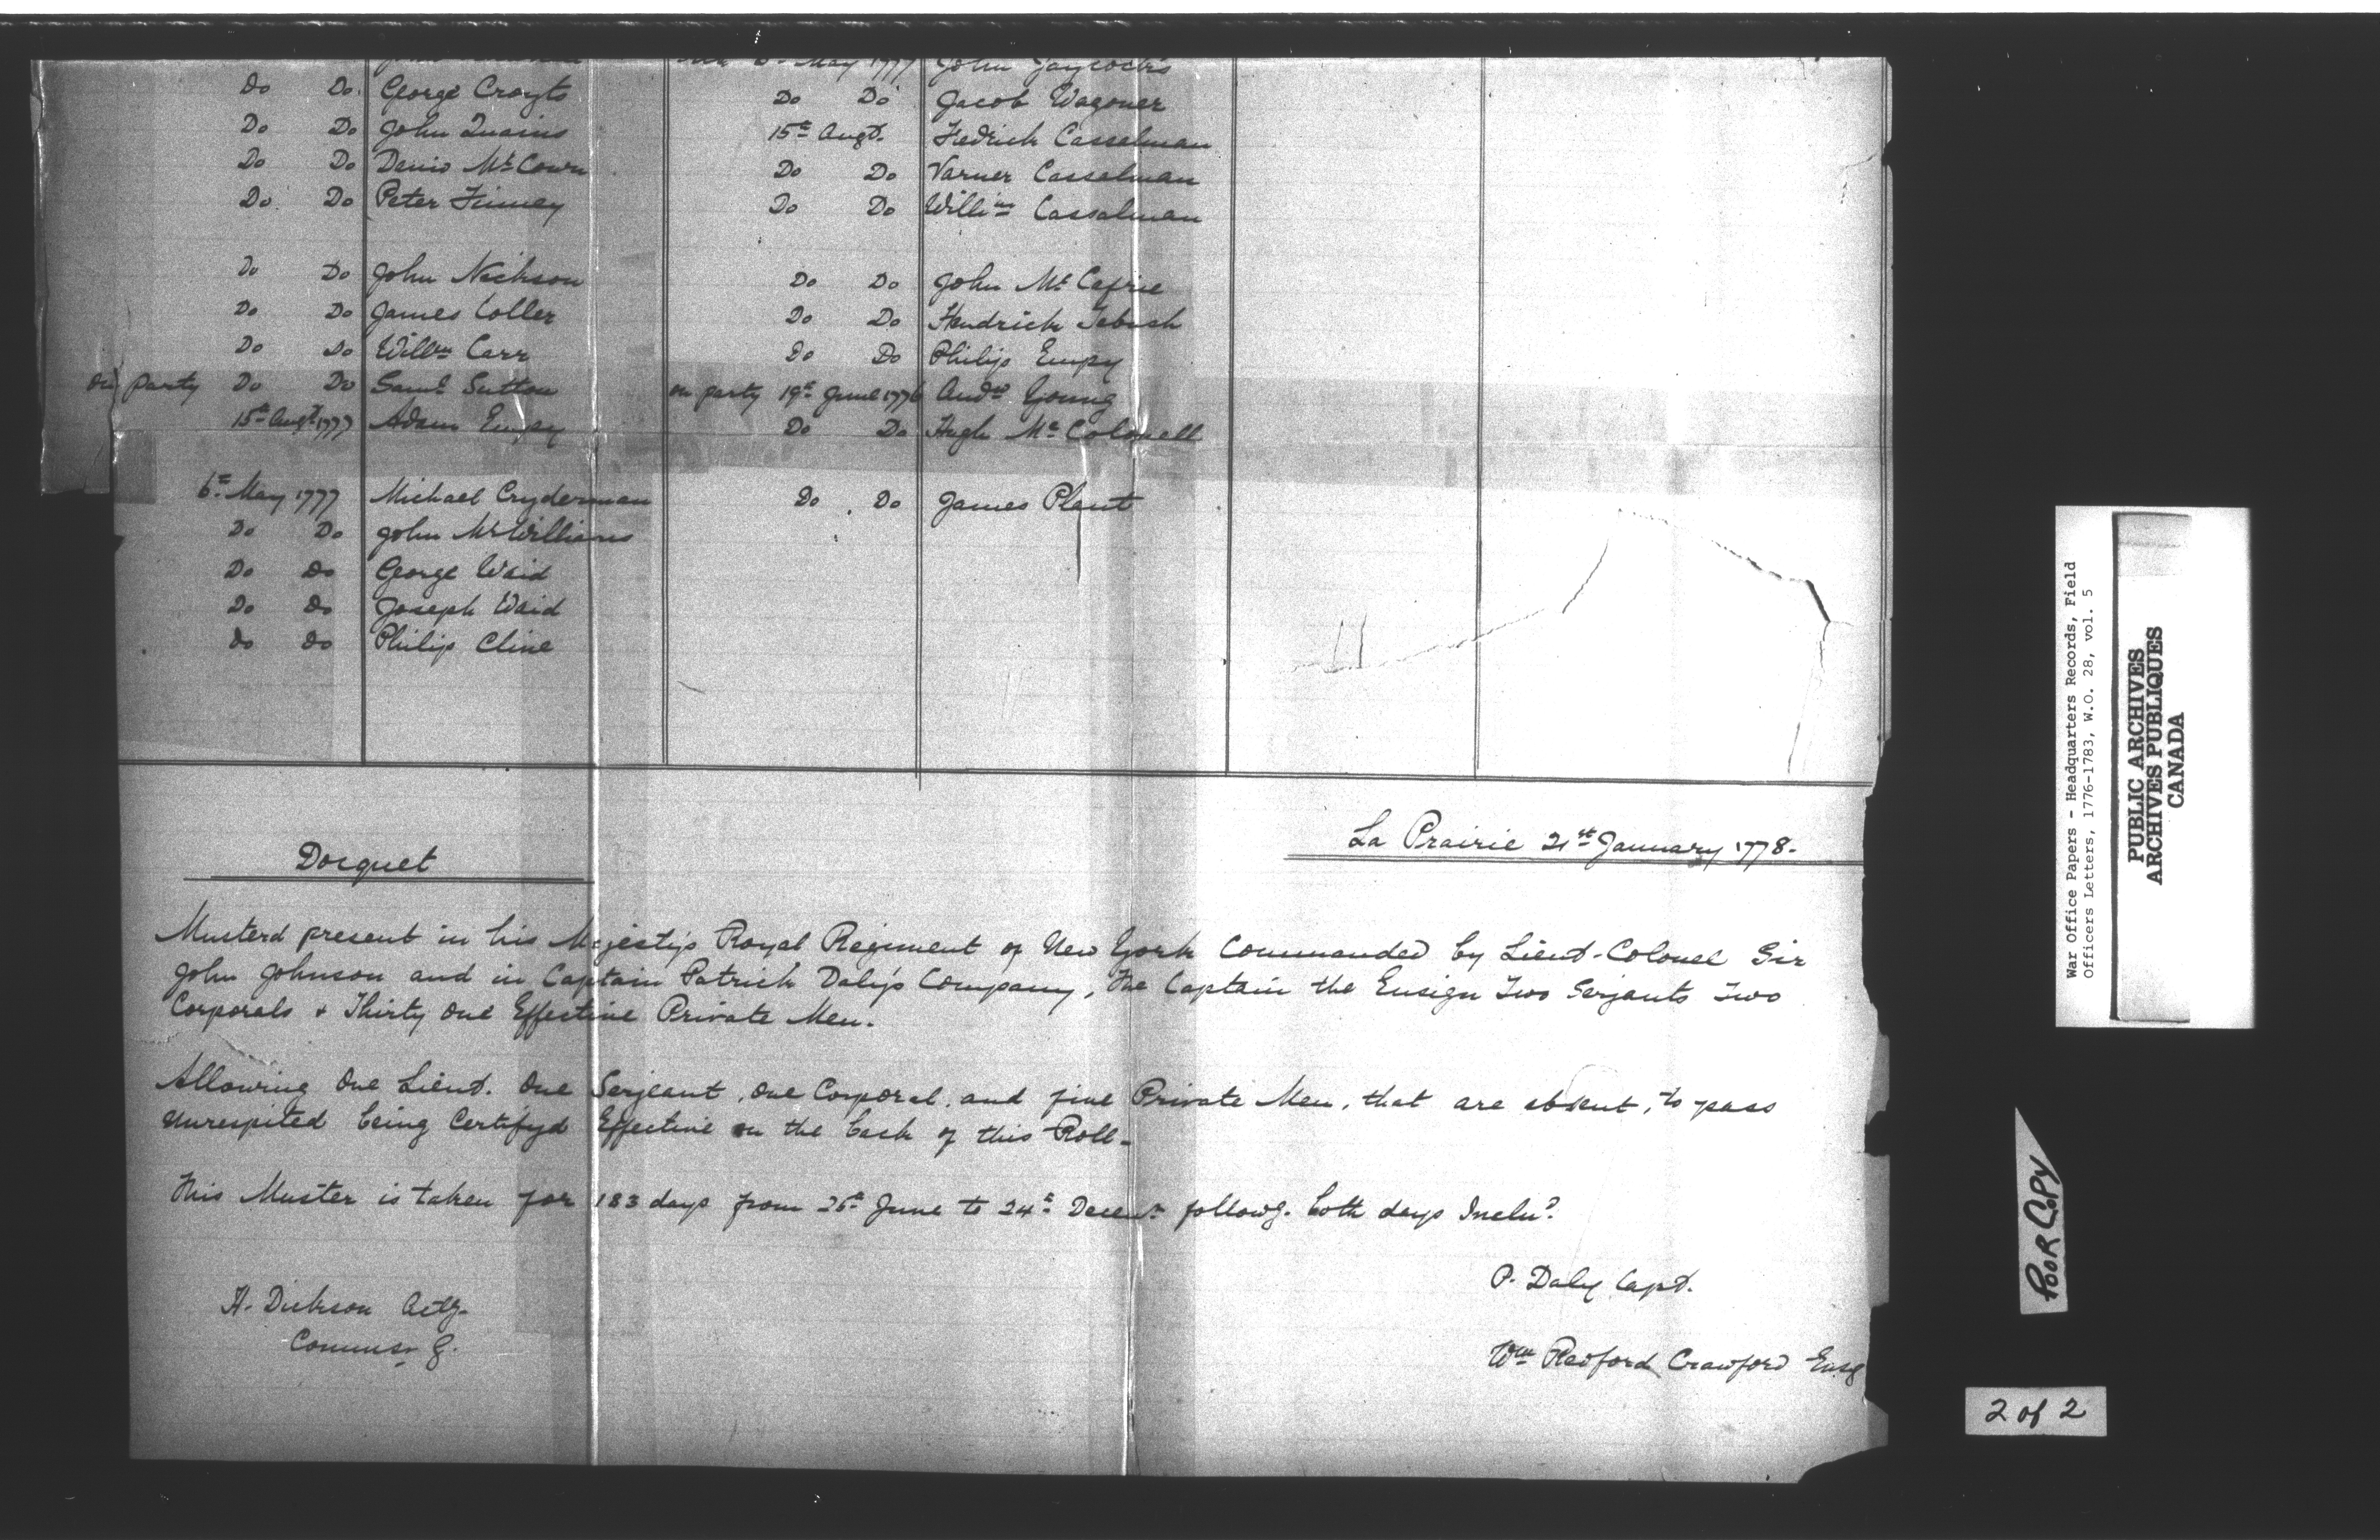 May 1777 John Jaycocks
Do Do George Crayts Do Do Jacob Wagoner
Do Do John Quains 15th Augt. Fredrick Casselman
Do Do Daniel McCown Do Do Varner Casselman
Do Do Peter Finney Do Do Willim Casselman
Do Do John Nickson Do Do John Mc Cafrie
Do Do James Coller Do Do Hendrick
Do Do Willm Carr Do Do Philip Empy
On party Do Do Saml Sutton on party 19th June 1776 Andw Young
15th Augt 1777 Adam Empy Do Do Hugh Mc Colonell
6th May 1777 Michael Cryderman Do Do James Plant
Do Do John McWilliams
Do Do George Waid
Do Do Joseph Waid
Do Do Philip Cline
La Prairie 21st January 1778.
Docquet
Musterd present in his Majesty's Royal Regiment of New York Commanded by Lieut-Colonel Sir
John Johnson and in Captain Patrick Daly's Company, The Captain the Ensign Two Serjants Two
Corporals & Thirty one Effective Private Men.
Allowing One Lieut. One Serjeant, One Corporal, and five Private Men, that are absent, to pass
unrespited being Certifyd Effective on the back of this Roll-
This Muster is taken for 183 days from 25th June to 24th Decemr followg. both days Inclu.
P. Daly Capt.
H. Dickson Actg.
Commsr G.
Wm Redford Crawford Ensg
War Office Papers - Headquarters Records, Field
Officers Letters, 1776-1783, W.O. 28, vol. 5
PUBLIC ARCHIVES
ARCHIVES PUBLIQUES
CANADA
POOR COPY
2 of 2